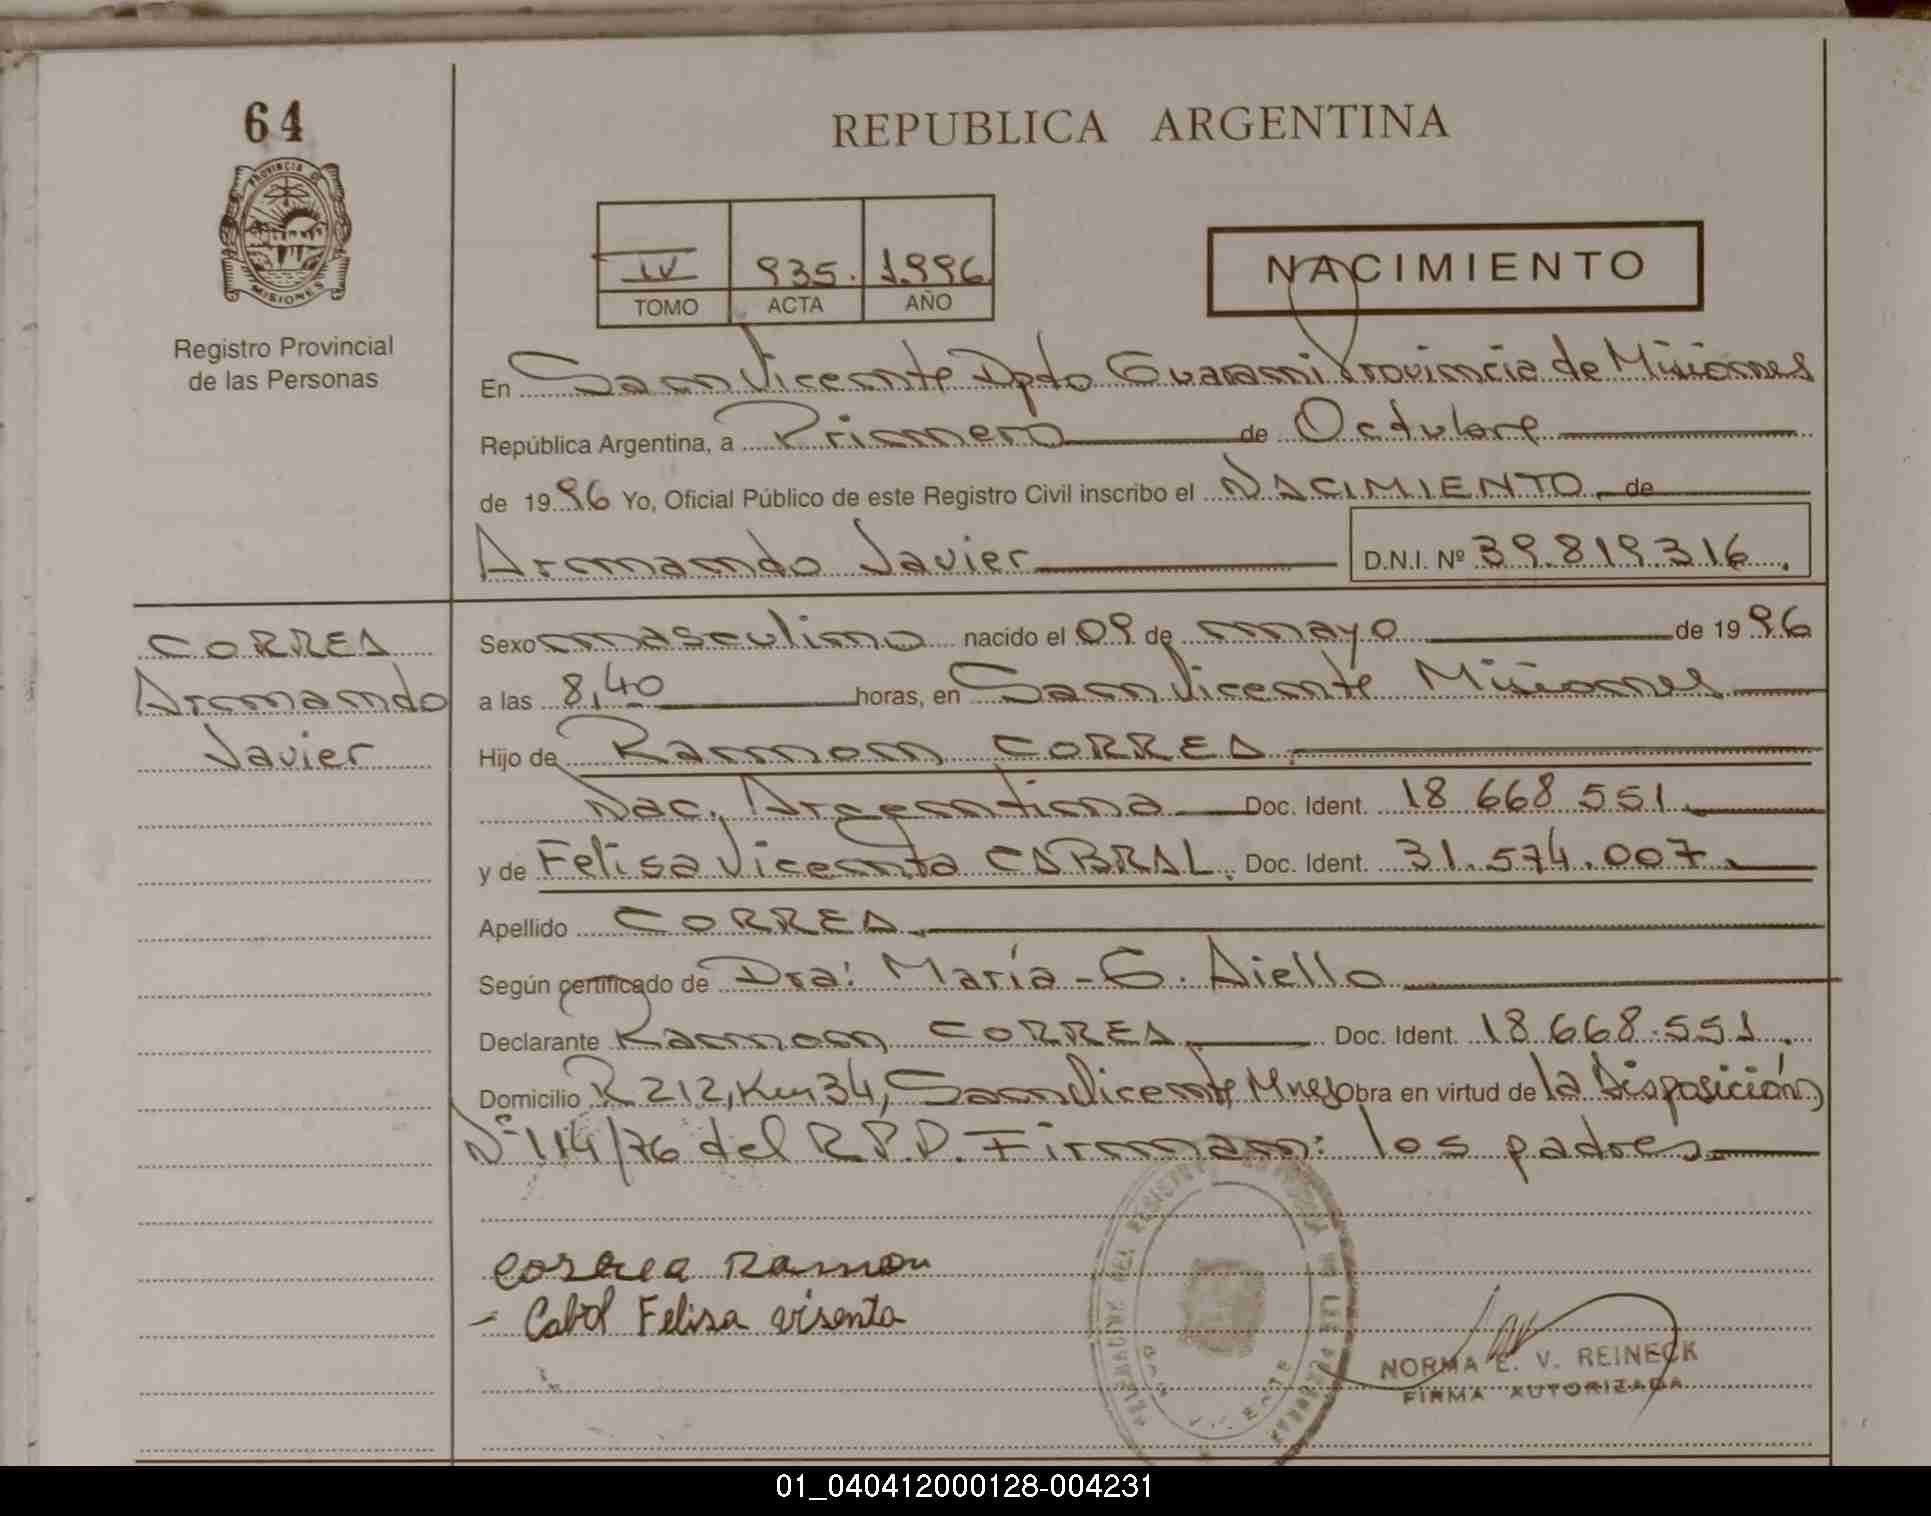 64
REPUBLICA ARGENTINA
PROVINCIA DE
MISIONES
IV 935. 1.996
TOMO ACTA AÑO
NACIMIENTO
Registro Provincial
de las Personas
En San Vicente Dpto Guarani Provincia de Misiones
República Argentina, a Primero de Octubre
de 1996 Yo, Oficial Público de este Registro Civil inscribo el NACIMIENTO de
Armando Javier D.N.I. Nº 39.819.316.
CORREA
Armando
Javier
Sexo masculino nacido el 09 de mayo de 1996
a las 8,40 horas, en San Vicente Misiones
Hijo de Ramon CORREA
Nac. Argentina Doc. Ident. 18 668 551
y de Felisa Vicenta CABRAL. Doc. Ident. 31.574.007.
Apellido CORREA
Según certificado de Dra: María - G. Aiello
Declarante Ramon CORREA Doc. Ident. 18.668.551.
Domicilio R 212, Km 34, San Vicente, Mnes Obra en virtud de la Disposición
Nº 114/76 del R.P.P. Firman: los padres
Correa Ramon
- Cabrl Felisa visenta
NORMA E. V. REINECK
FIRMA AUTORIZADA
01_040412000128-004231